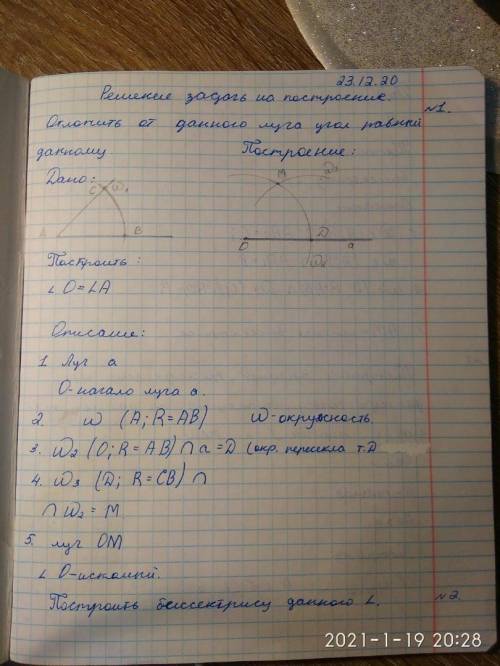 23.12.20
Решение задачь на построение.
№1.
Отложить от данного луча угол равный
данному
Построение:
Дано:
C ω₁
A B
M ω₃
O D a
ω₂
Построить:
∠O=∠A
Описание:
1. Луч a
O-начало луча a.
2. ω (A; R=AB) ω-окружность
3. ω₂ (O; R=AB) ∩ a = D (окр. пересекла т.D
4. ω₃ (D; R=CB) ∩
∩ ω₂ = M
5. луч OM
∠ O-искомый.
Построить бессектрису данного ∠. №2.
2021-1-19 20:28